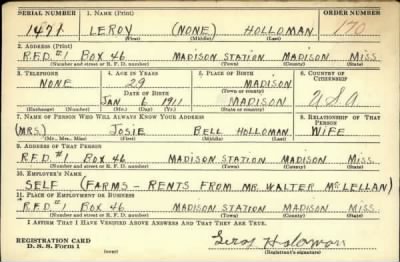 SERIAL NUMBER 1. NAME (Print) ORDER NUMBER
1471 LEROY (NONE) HOLLOMAN 170
(First) (Middle) (Last)
2. ADDRESS (Print)
R.F.D. #1 BOX 46 MADISON STATION MADISON MISS.
(Number and street or R. F. D. number) (Town) (County) (State)
3. TELEPHONE 4. AGE IN YEARS 5. PLACE OF BIRTH 6. COUNTRY OF CITIZENSHIP
NONE 29 MADISON
(Town or county)
DATE OF BIRTH
JAN 6 1911 MADISON U.S.A
(Exchange) (Number) (Mo.) (Day) (Yr.) (State or country)
7. NAME OF PERSON WHO WILL ALWAYS KNOW YOUR ADDRESS 8. RELATIONSHIP OF THAT PERSON
(MRS.) JOSIE BELL HOLLOMAN WIFE
(Mr., Mrs., Miss) (First) (Middle) (Last)
9. ADDRESS OF THAT PERSON
R.F.D. #1 BOX 46 MADISON STATION MADISON MISS.
(Number and street or R. F. D. number) (Town) (County) (State)
10. EMPLOYER'S NAME
SELF (FARMS - RENTS FROM MR. WALTER McLELLAN)
11. PLACE OF EMPLOYMENT OR BUSINESS
R.F.D. #1 BOX 46 MADISON STATION MADISON MISS.
(Number and street or R. F. D. number) (Town) (County) (State)
I AFFIRM THAT I HAVE VERIFIED ABOVE ANSWERS AND THAT THEY ARE TRUE.
REGISTRATION CARD
D. S. S. Form 1 (over) (Registrant's signature)